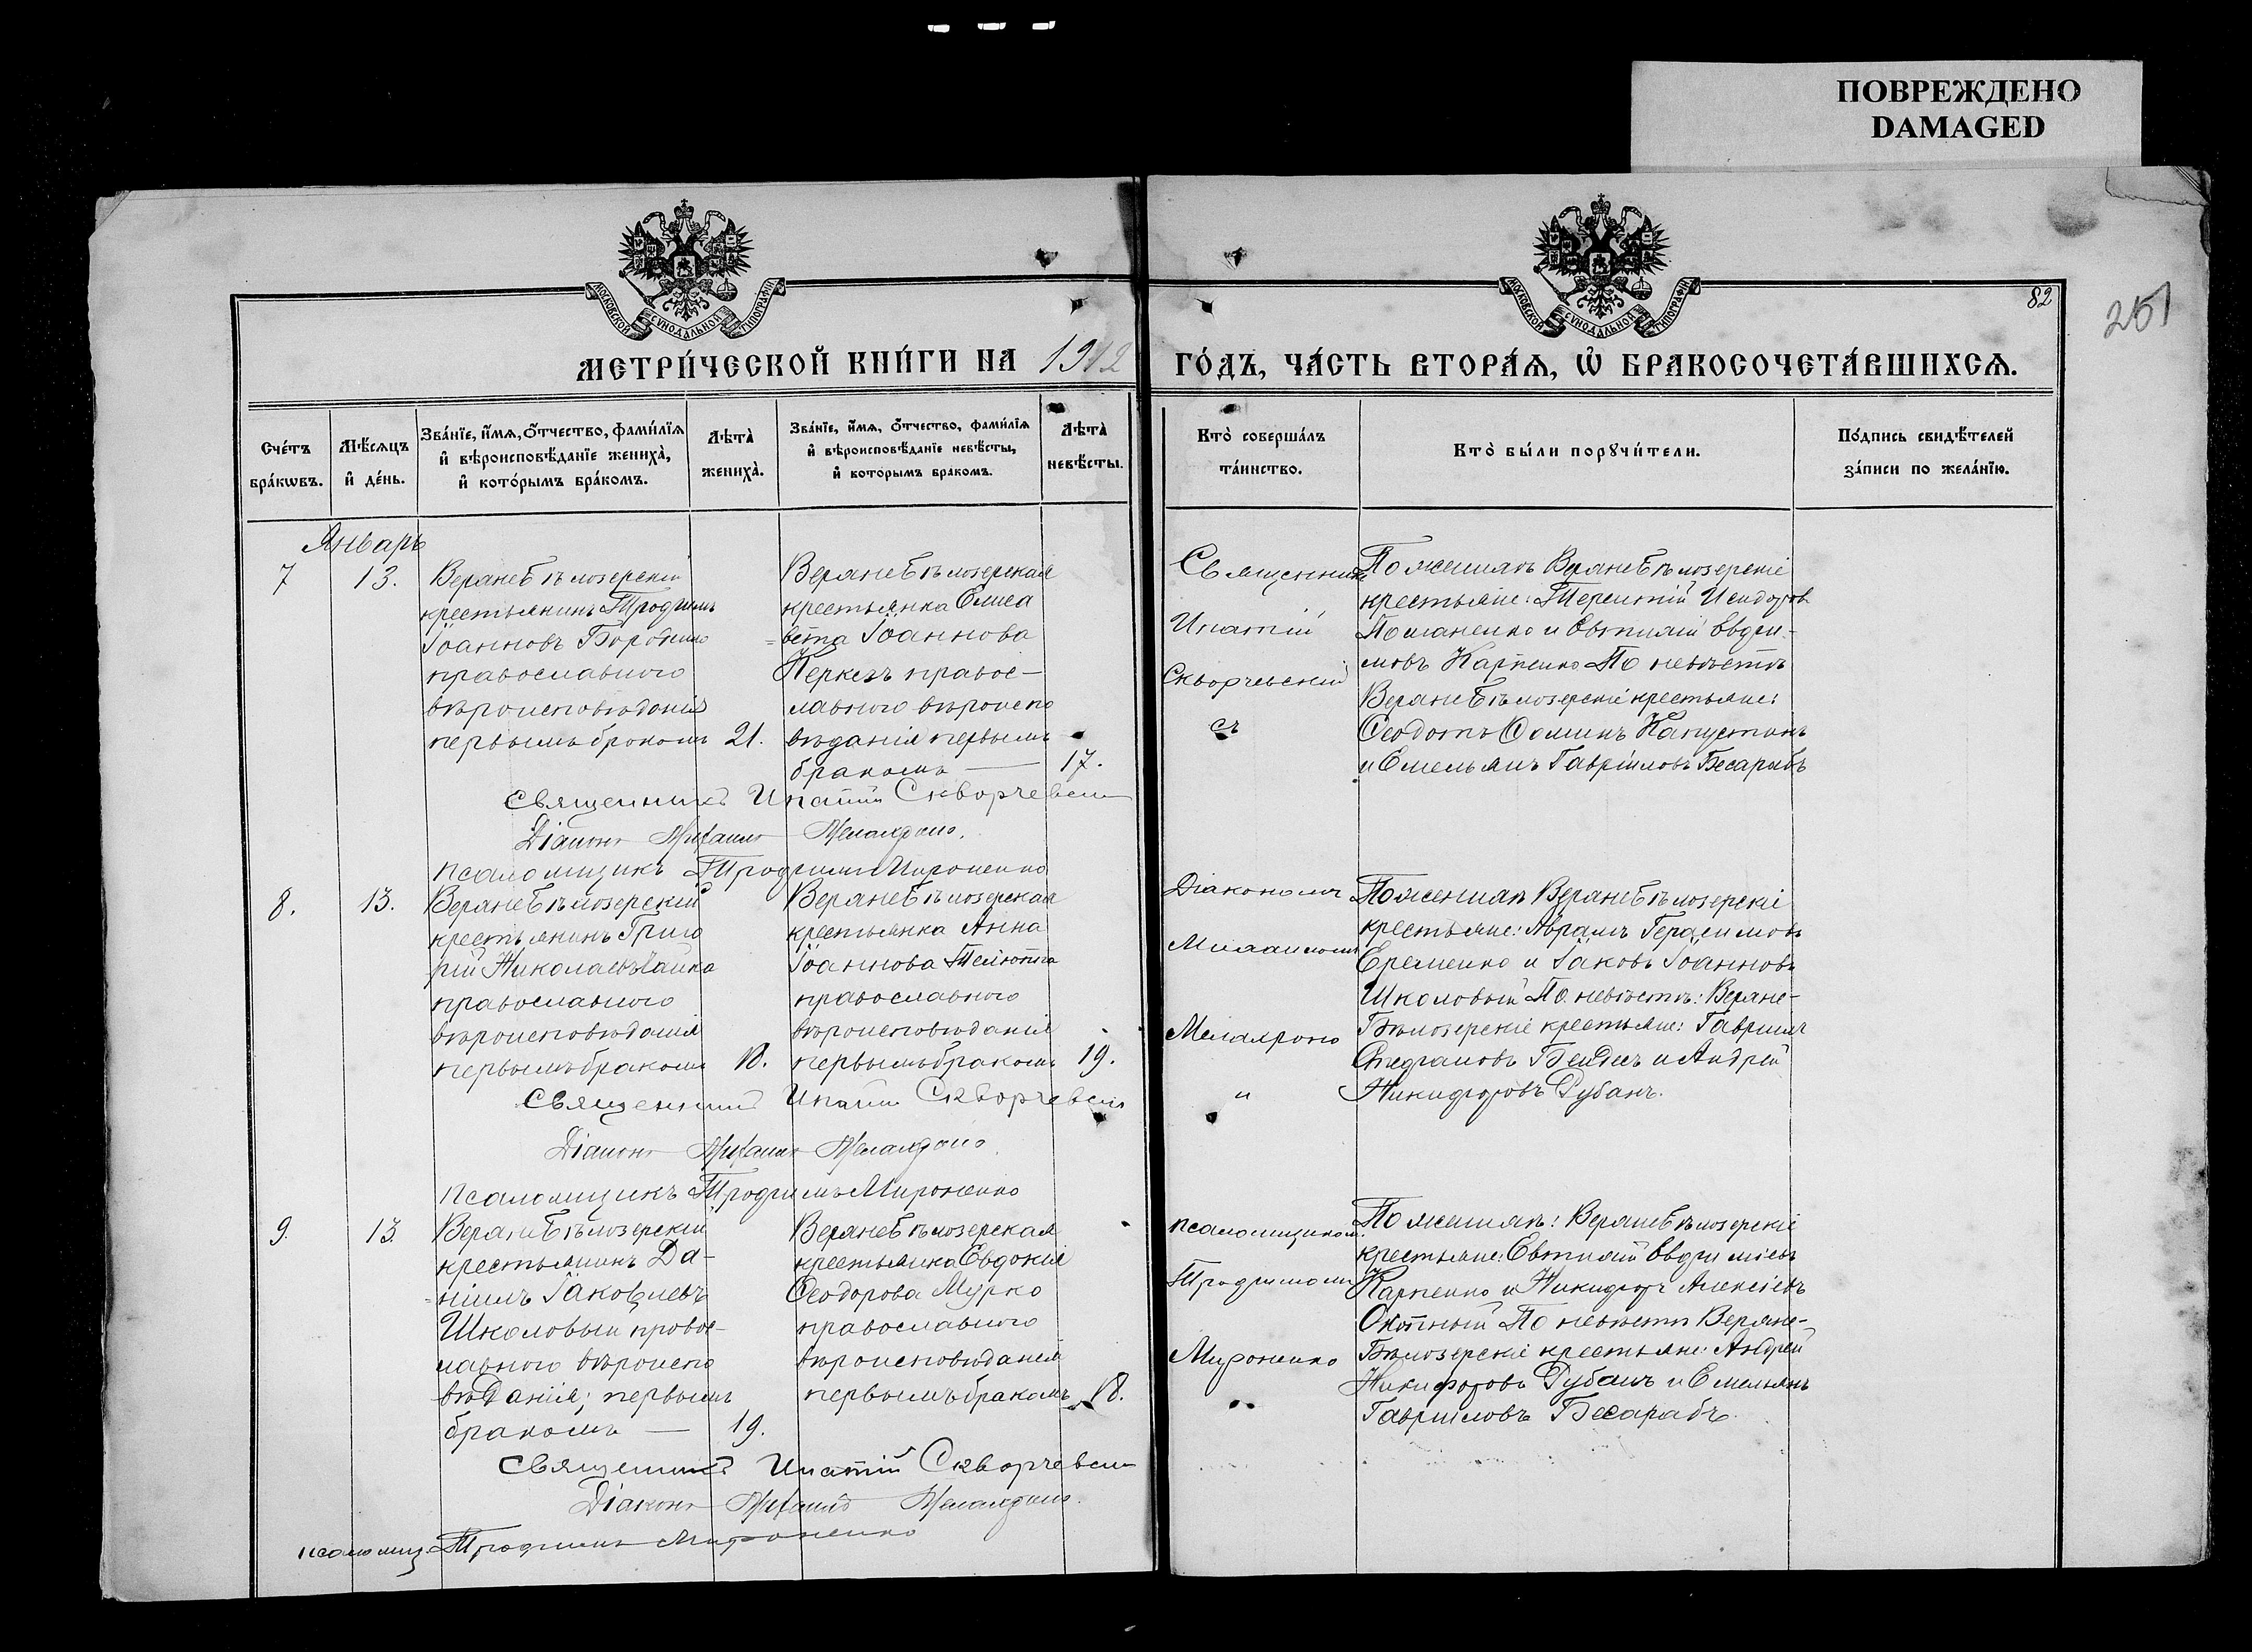 ПОВРЕЖДЕНО
DAMAGED
МОСКОВСКОЙ СѴНОДАЛЬНОЙ ТИПОГРАФІИ
МОСКОВСКОЙ СѴНОДАЛЬНОЙ ТИПОГРАФІИ
82
251
МЕТРИ́ЧЕСКОЙ КНИ́ГИ НА 1912
ГО́ДЪ, ЧА́СТЬ ВТОРА́Ѧ, Ѡ҆ БРАКОСОЧЕТА́ВШИХСѦ.
Сче́тъ
бра́кѡвъ.
Мѣ́сяцъ
и҆ де́нь.
Зва́нїе, и҆́мѧ, ѻ҆́тчество, фами́лїѧ
и҆ вѣроисповѣ́данїе жениха̀,
и҆ кото́рымъ бра́комъ.
Лѣта̀
жениха̀.
Зва́нїе, и҆́мѧ, ѻ҆́тчество, фами́лїѧ
и҆ вѣроисповѣ́данїе невѣ́сты,
и҆ которымъ бракомъ.
Лѣта̀
невѣ́сты.
Кто̀ соверша́лъ
та́инство.
Кто̀ бы́ли порꙋчи́тели.
По́дпись свидѣ́телей
за́писи по жела́нїю.
Январь
7
13.
Верхнебѣлозерскій
крестьянинъ Трофимъ
Іоанновъ
православного
вѣроисповѣданія
первымъ бракомъ
21.
Верхнебѣлозерская
крестьянка Елиса
=вета Іоаннова
правос-
лавного вѣроиспо
вѣданія первымъ
бракомъ —
17.
Священникъ
Ипатій
Скворчевскій
съ
По женихѣ Верхнебѣлозерскіе
крестьяне: Терентій Исидоров
и Евтихій Евфи-
мовъ Карпенко По невѣстѣ
Верхнебѣлозерскіе крестьяне:
Ѳеодотъ Ѳоминъ Капустянъ
и Емельянъ Гавріиловъ Бесарабъ
Священникъ Ипатій Скворчевскій
Діаконъ Михаилъ
псаломщикъ Трофимъ Мироненко
8.
13.
Верхнебѣлозерскій
крестьянинъ Григо
рій Николаевъ
православного
вѣроисповѣданія
первымъ бракомъ
18.
Верхнебѣлозерская
крестьянка Анна
Іоаннова
православного
вѣроисповѣданія
первымъ бракомъ
19.
Діакономъ
Михаиломъ
и
По женихѣ Верхнебѣлозерскіе
крестьяне: Аврамъ Герасимовъ
Еременко и Іаковъ Іоанновъ
Школовый По невѣстѣ: Верхне-
бѣлозерскіе крестьяне: Гавріилъ
Стефановъ и Андрей
Никифоровъ Дубанъ.
Священникъ Ипатій Скворчевскій
Діаконъ Михаилъ
псаломщикъ Трофимъ Мироненко
9.
13
Верхнебѣлозерскій
крестьянинъ Да-
=ніилъ Іаковлевъ
Школовый правос-
лавного вѣроиспо
вѣданія; первымъ
бракомъ —
19.
Верхнебѣлозерская
крестьянка Евдокія
Ѳеодорова Мурко
православного
вѣроисповѣданія
первымъ бракомъ
18.
псаломщикомъ
Трофимомъ
Мироненко
По женихѣ: Верхнебѣлозерскіе
крестьяне: Евтихій Евфиміевъ
Карпенко и Никифоръ Алексіевъ
По невѣстѣ Верхне-
бѣлозерскіе крестьяне: Андрей
Никифоровъ Дубанъ и Емельянъ
Гавріиловъ Бесарабъ.
Священникъ Ипатій Скворчевскій
Діаконъ Михаилъ
псаломщ. Трофимъ Мироненко